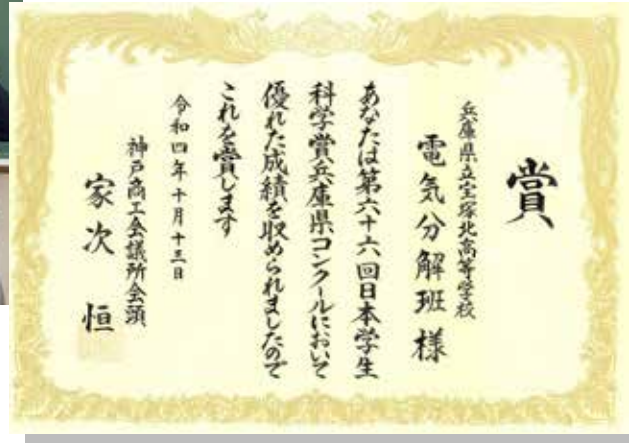 賞
兵庫県立宝塚北高等学校
電気分解班様
あなたは第六十六回日本学生
科学賞兵庫県コンクールにおいて
優れた成績を収められましたので
これを賞します
令和四年十月十三日
神戸商工会議所会頭
家次恒